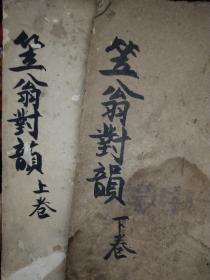 笠翁對韻下卷
笠翁對韻上卷